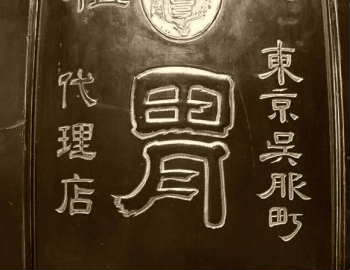 東京呉服町
胃
代理店